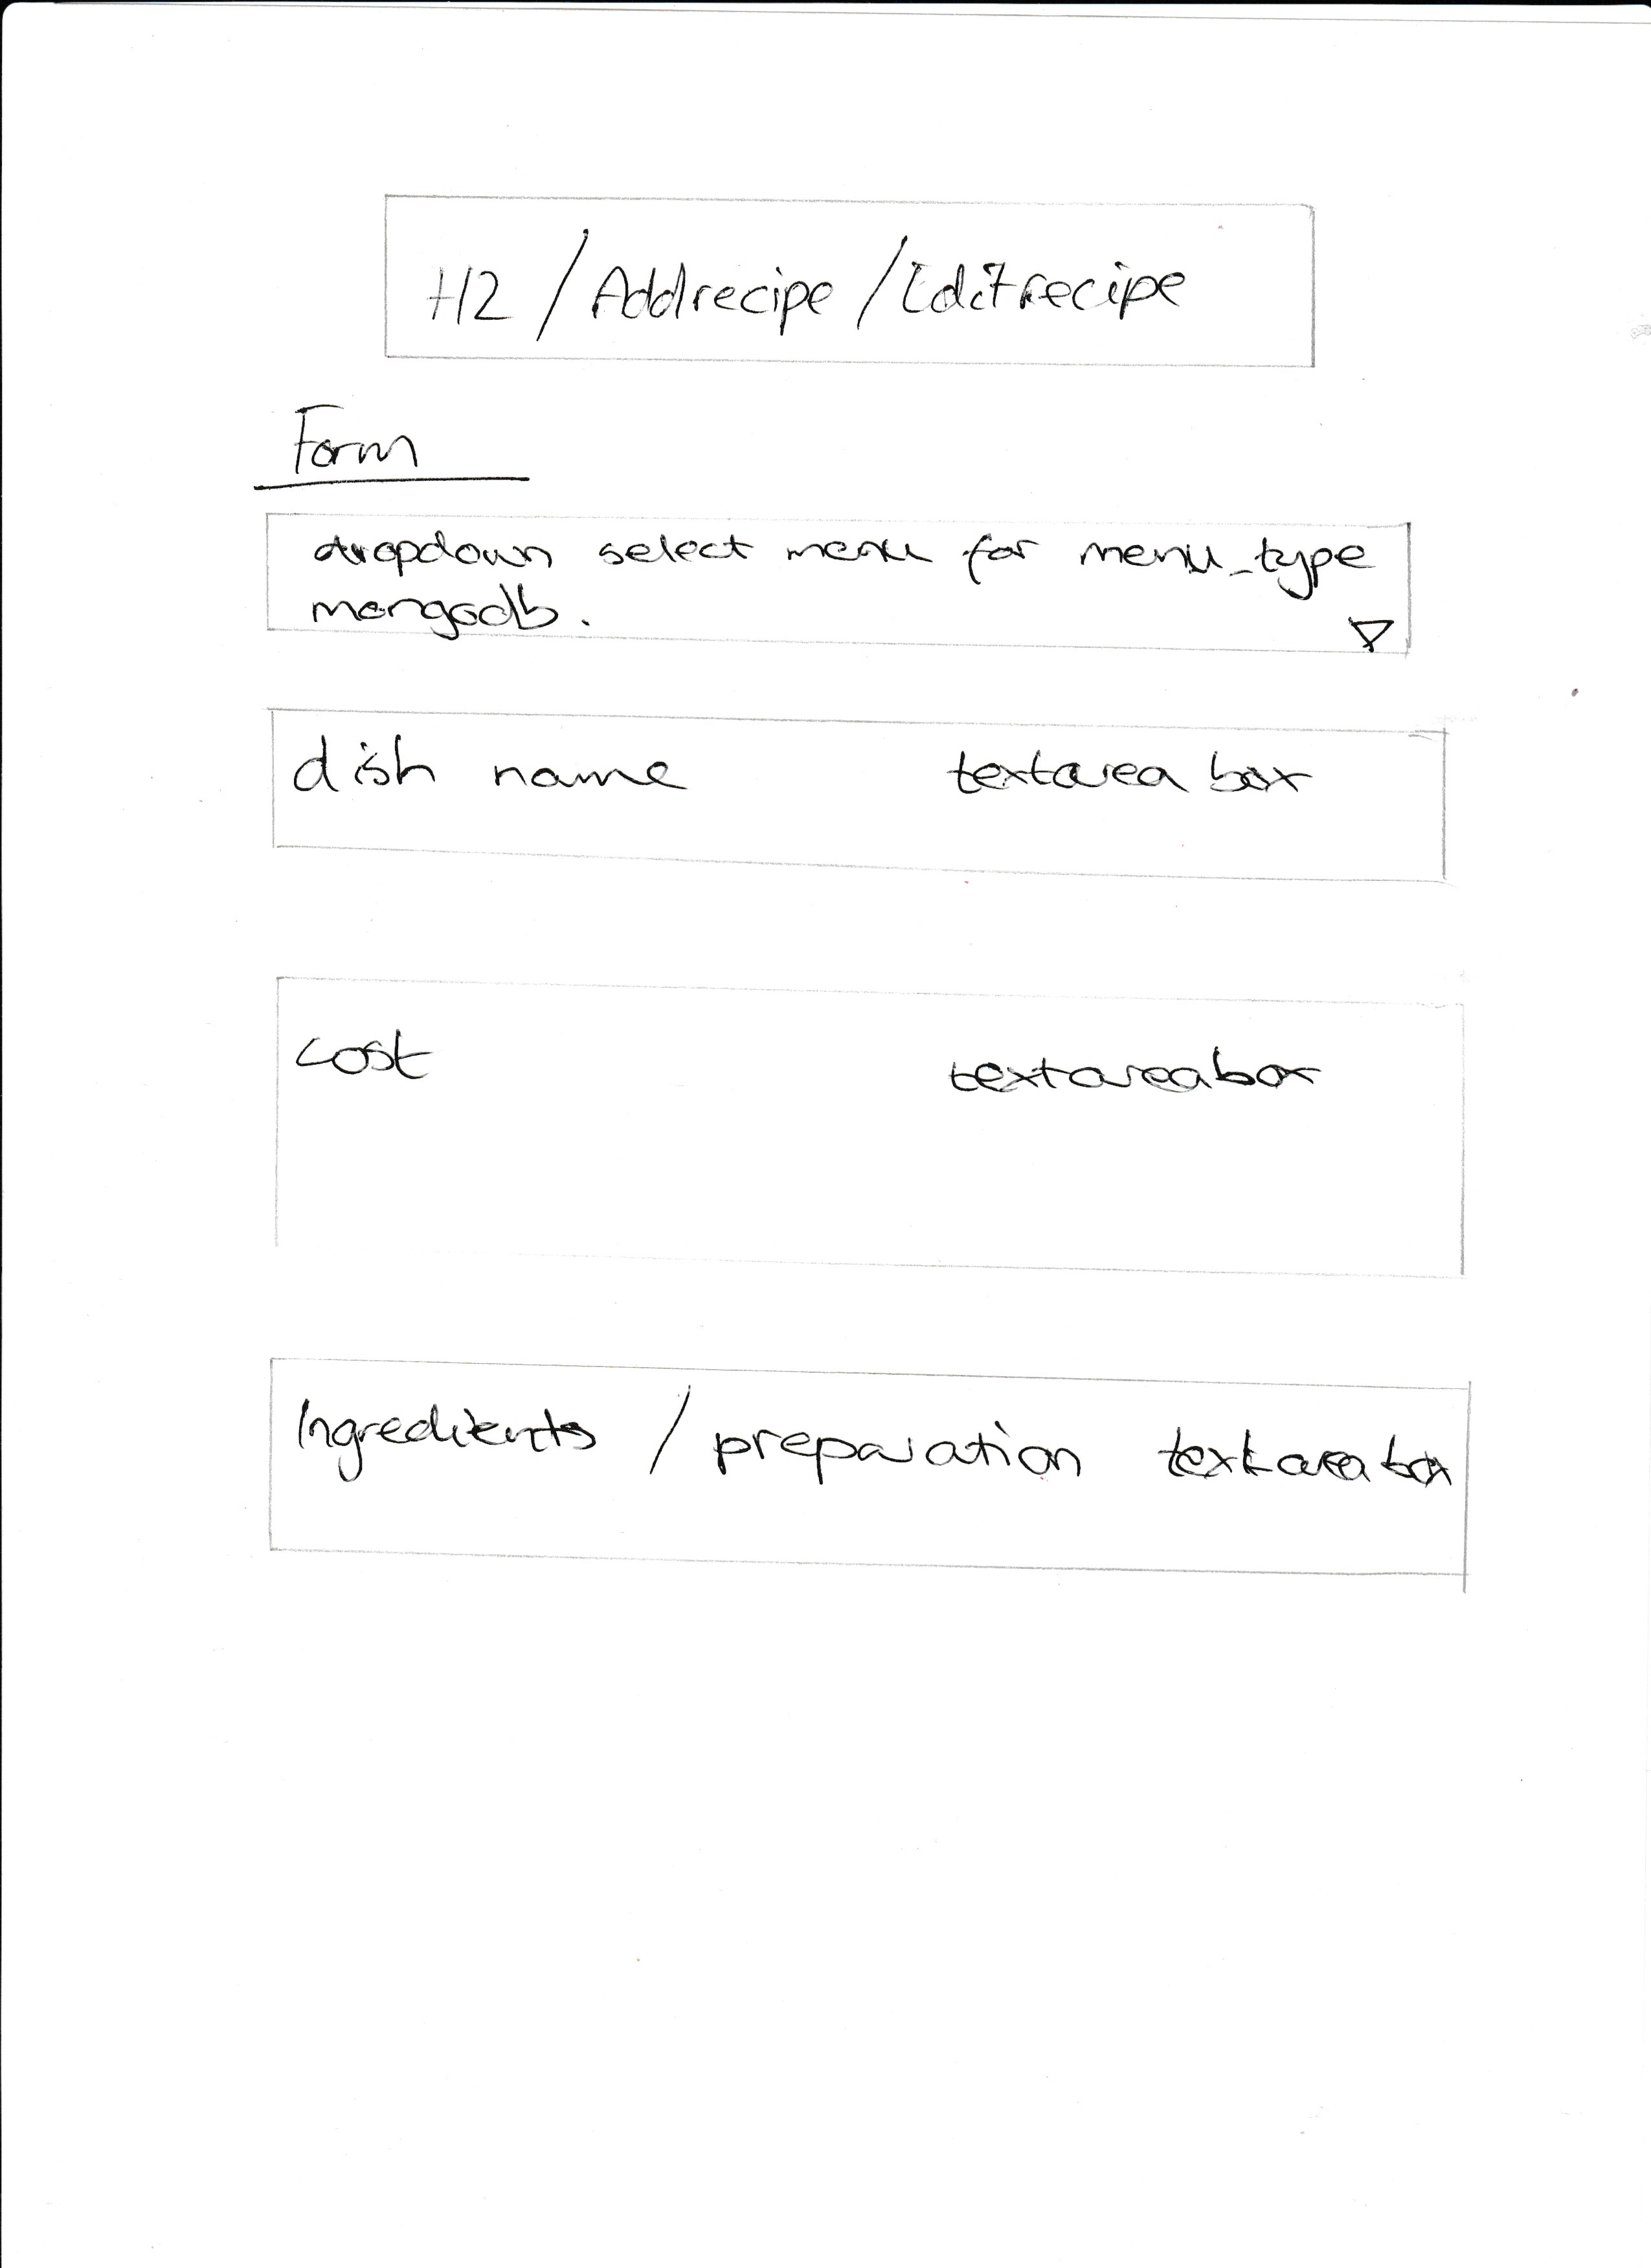 H2 / Addrecipe / Editrecipe
Form
dropdown select menu for menu_type
mongodb.
dish name textarea box
cost textareabox
Ingredients / preparation textarea box